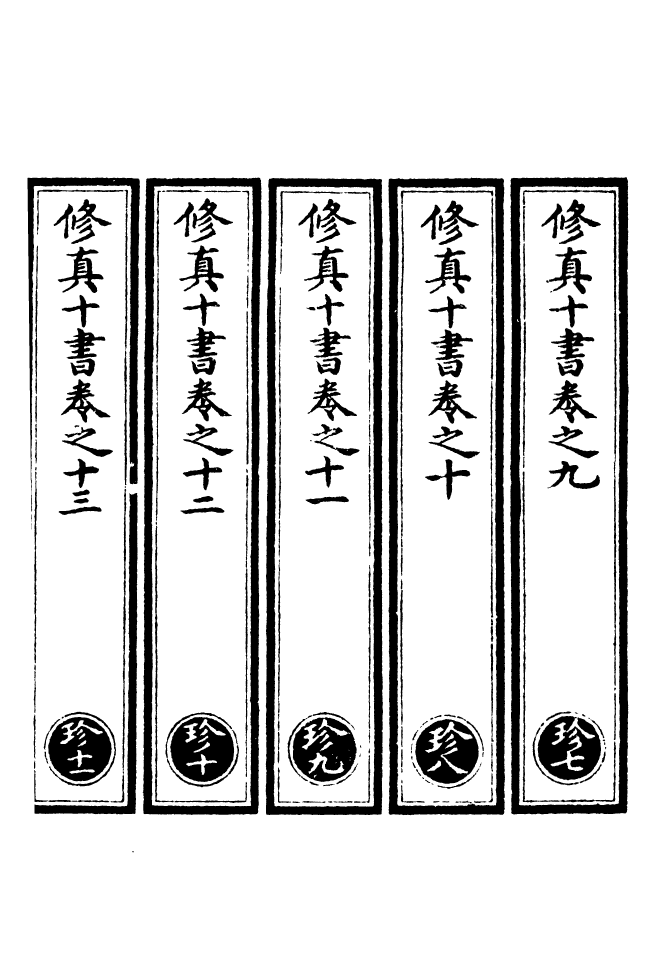 修真十書卷之九
珍七
修真十書卷之十
珍八
修真十書卷之十一
珍九
修真十書卷之十二
珍十
修真十書卷之十三
珍十一